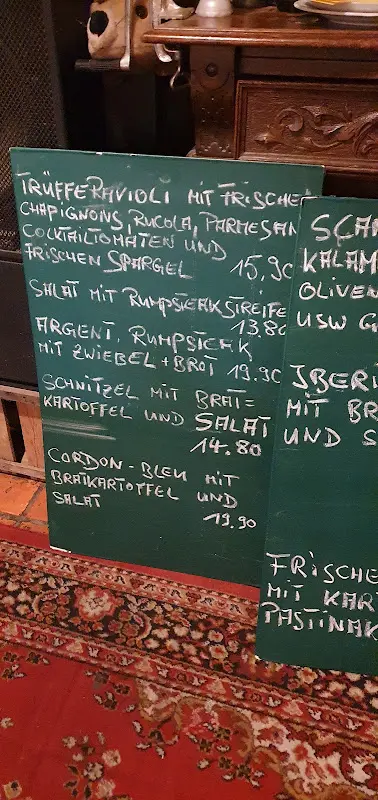 TRÜFFERAVIOLI MIT FRISCHE
CHAPIGNONS, RUCOLA, PARMESAN
COCKTAILTOMATEN UND
FRISCHEN SPARGEL 15,90
SALAT MIT RUMPSTEAKSTREIFE
13.80
ARGENT. RUMPSTEAK
MIT ZWIEBEL + BROT 19.90
SCHNITZEL MIT BRAT=
KARTOFFEL UND SALAT
14.80
CORDON-BLEU MIT
BRATKARTOFFEL UND
SALAT
19.90
SCA
KALAM
OLIVEN
USW G
IBERI
MIT BR
UND S
FRISCHE
MIT KART
PASTINAK